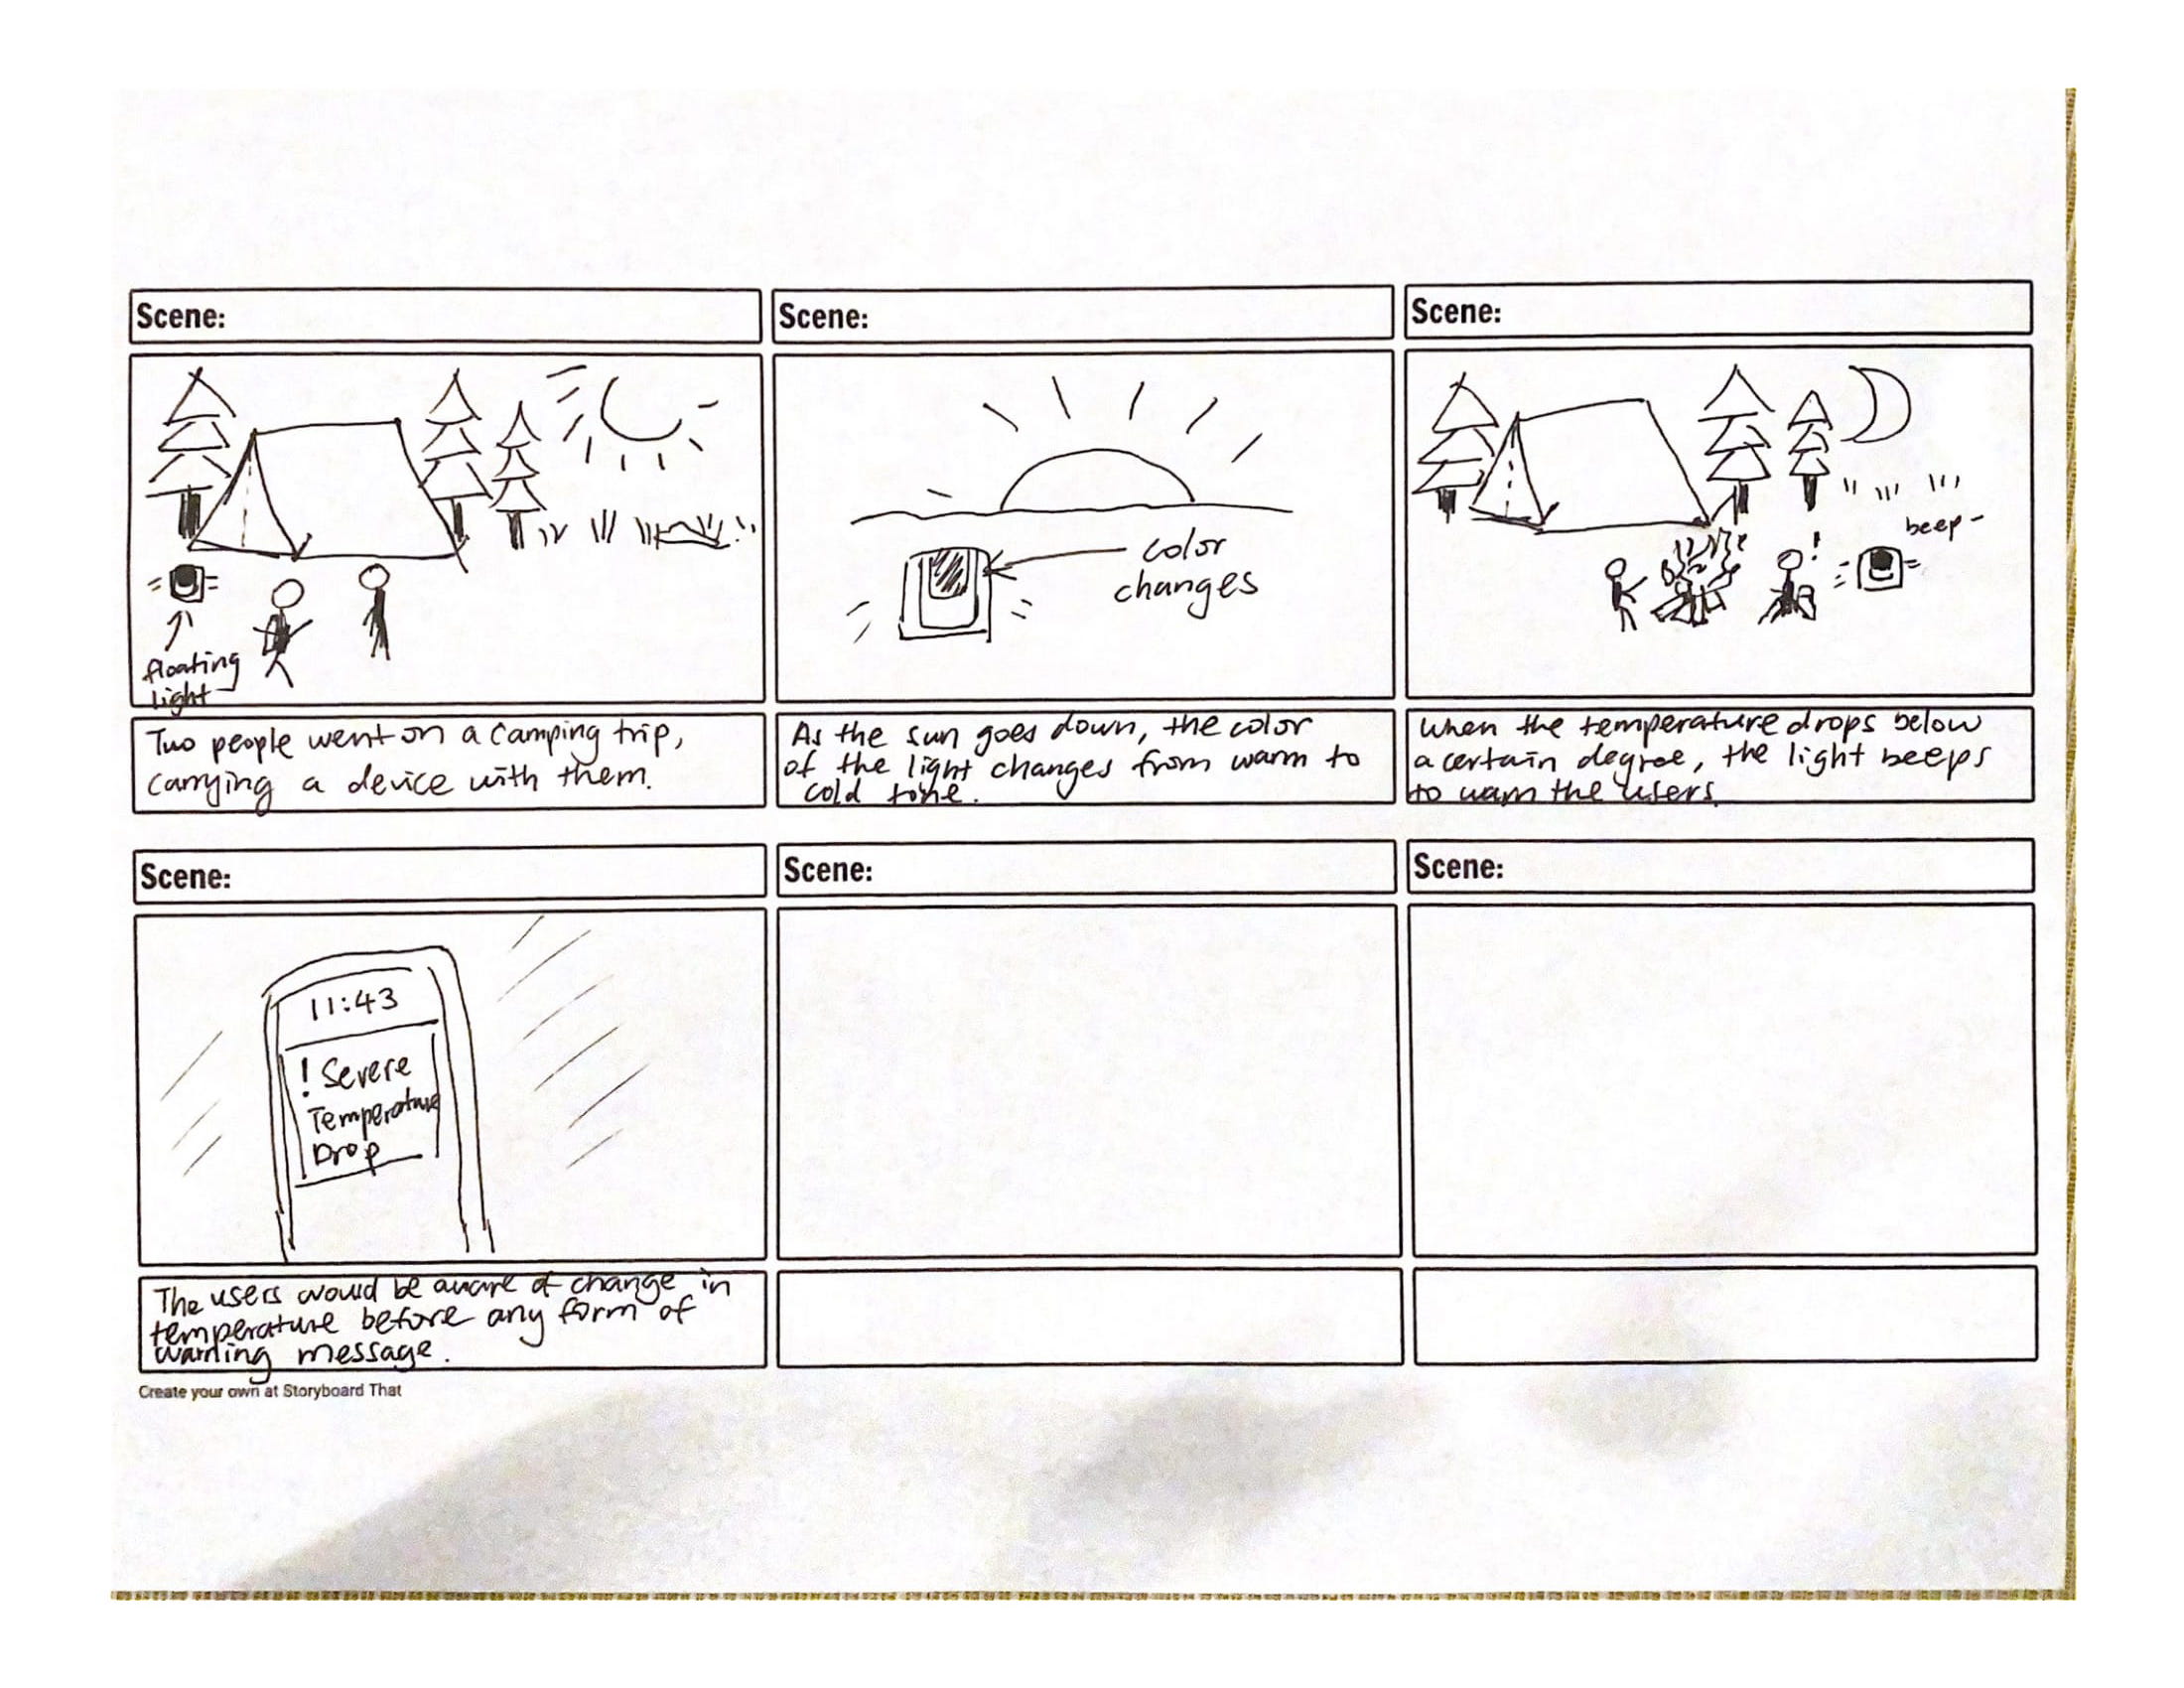 Scene:
Scene:
Scene:
floating
light
color
changes
beep-
!
Two people went on a camping trip,
carrying a device with them.
As the sun goes down, the color
of the light changes from warm to
cold tone.
When the temperature drops below
a certain degree, the light beeps
to warn the users.
Scene:
Scene:
Scene:
11:43
! Severe
Temperature
Drop
The users would be aware of change in
temperature before any form of
warning message.
Create your own at Storyboard That